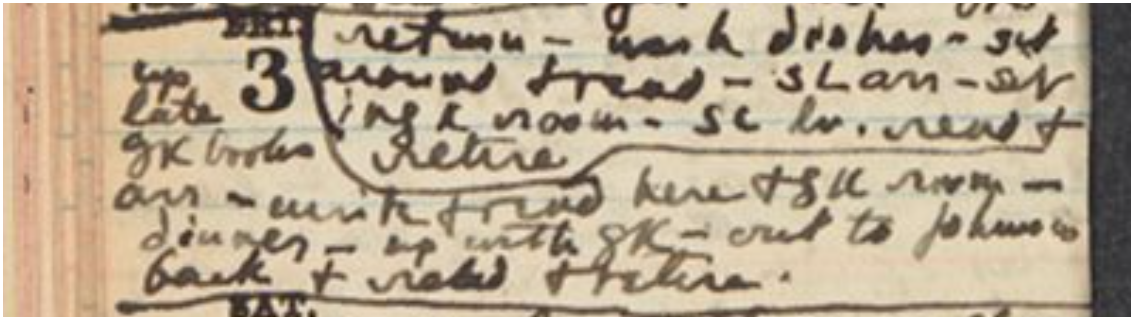 FRI.
return - wash dishes - sit
around & read - SL arr - sit
in gk room - SL lv. read &
retire
3
up
late
gk books
arr - write & read here & gk room -
dinner - up with gk - out to Johnsons
back & & retire.
SAT.